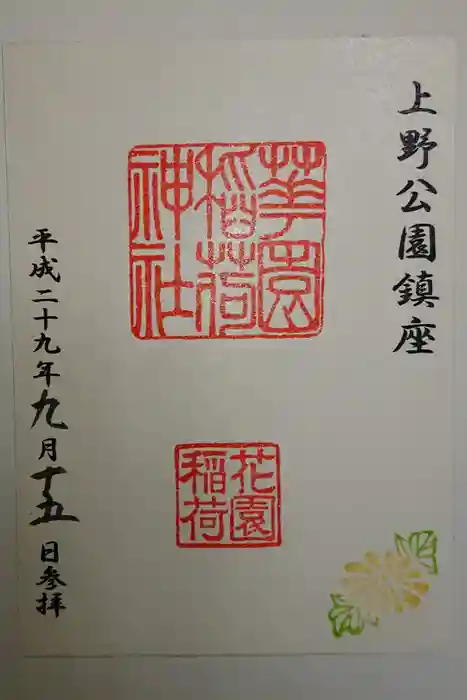 上野公園鎮座
華園
稲荷
神社
花園
稲荷
平成二十九年九月十五日参拝